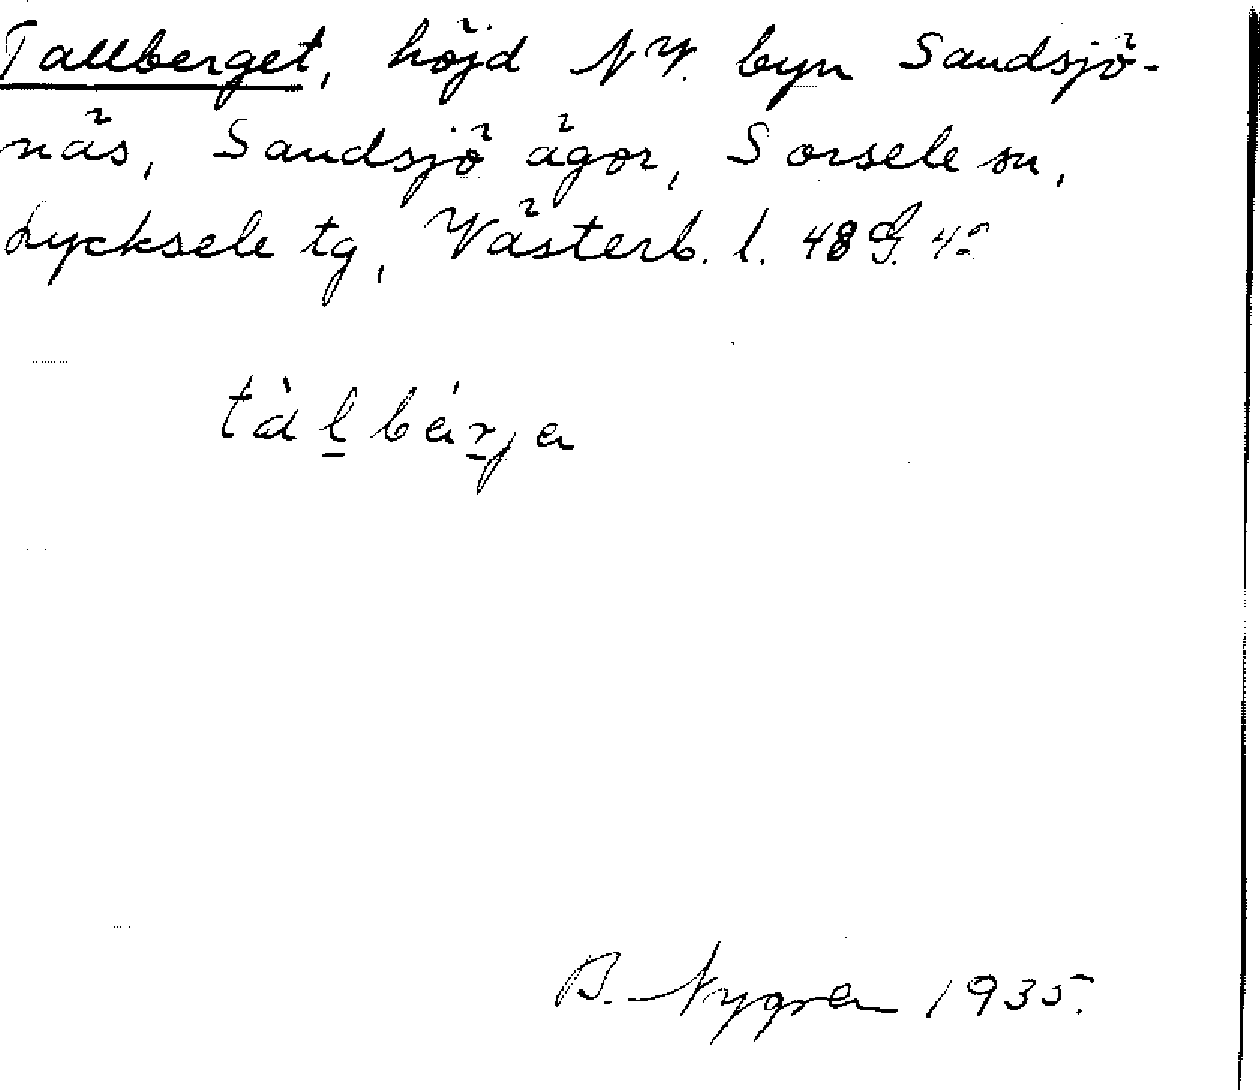 Tallberget, höjd NV. byn Sandsjö-
näs, Sandsjö ägor, Sorsele sn,
Lycksele tg, Västerb. l. 48 G.
tàl̲bár̲ja
B. Nygren 1935.